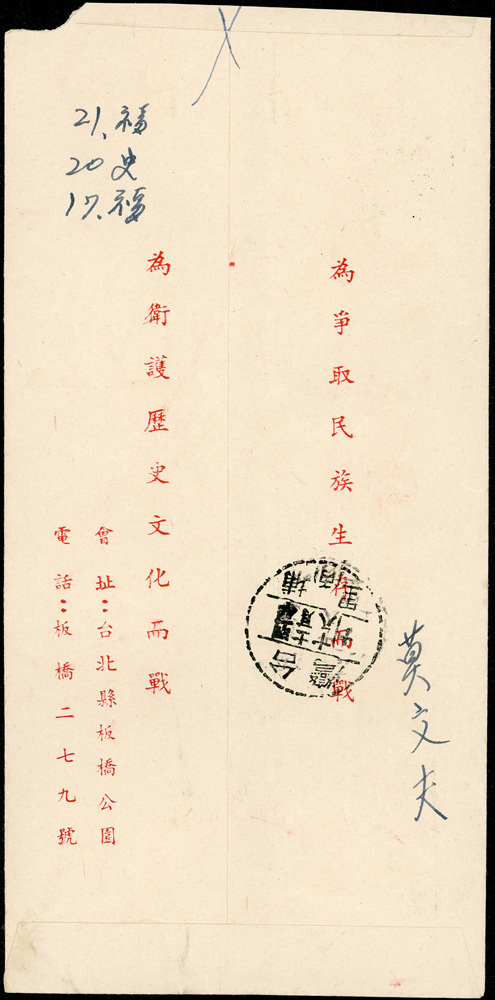 為爭取民族生存而戰
為衛護歷史文化而戰
會址：台北縣板橋公園
電話：板橋二七九號
莫文夫
21.福
20史
17.福
台灣
埔里